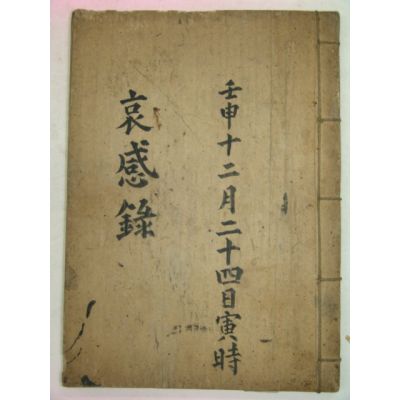 壬申十二月二十四日寅時
哀感錄